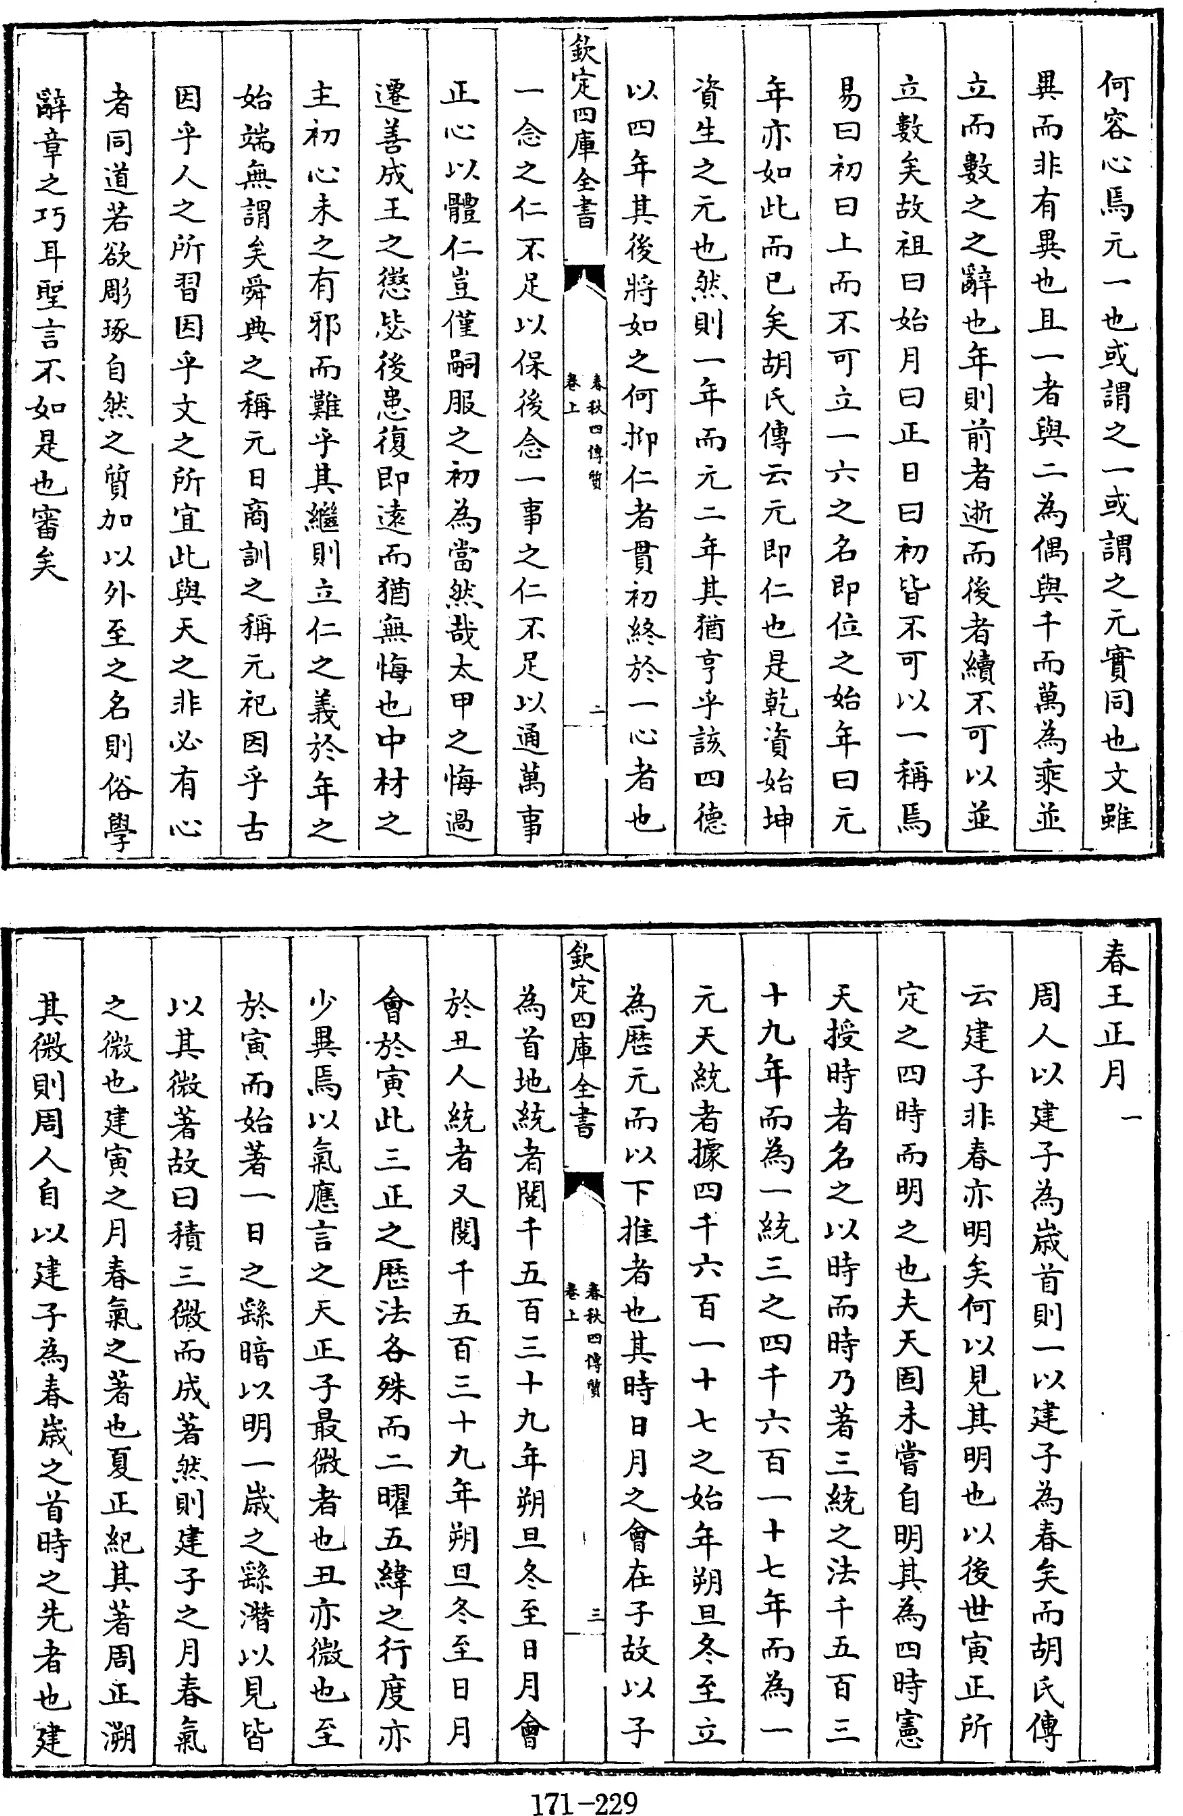 何容心焉元一也或謂之一或謂之元實同也文雖
異而非有異也且一者與二為偶與千而萬為乘並
立而數之之辭也年則前者逝而後者續不可以並
立數矣故祖曰始月曰正日曰初皆不可以一稱焉
易曰初曰上而不可立一六之名即位之始年曰元
年亦如此而已矣胡氏傳云元即仁也是乾資始坤
資生之元也然則一年而元二年其猶亨乎該四德
以四年其後將如之何抑仁者貫初終於一心者也
欽定四庫全書
春秋四傳質
卷上
二
一念之仁不足以保後念一事之仁不足以通萬事
正心以體仁豈僅嗣服之初為當然哉太甲之悔過
遷善成王之懲毖後患復即遠而猶無悔也中材之
主初心未之有邪而難乎其繼則立仁之義於年之
始端無謂矣舜典之稱元日商訓之稱元祀因乎古
因乎人之所習因乎文之所宜此與天之非必有心
者同道若欲彫琢自然之質加以外至之名則俗學
辭章之巧耳聖言不如是也審矣
春王正月一
周人以建子為歲首則一以建子為春矣而胡氏傳
云建子非春亦明矣何以見其明也以後世寅正所
定之四時而明之也夫天固未嘗自明其為四時憲
天授時者名之以時而時乃著三統之法千五百三
十九年而為一統三之四千六百一十七年而為一
元天統者據四千六百一十七之始年朔旦冬至立
為歷元而以下推者也其時日月之會在子故以子
欽定四庫全書
春秋四傳質
卷上
三
為首地統者閱千五百三十九年朔旦冬至日月會
於丑人統者又閱千五百三十九年朔旦冬至日月
會於寅此三正之歷法各殊而二曜五緯之行度亦
少異焉以氣應言之天正子最微者也丑亦微也至
於寅而始著一日之繇暗以明一歲之繇潛以見皆
以其微著故曰積三微而成著然則建子之月春氣
之微也建寅之月春氣之著也夏正紀其著周正溯
其微則周人自以建子為春歲之首時之先者也建
171-229